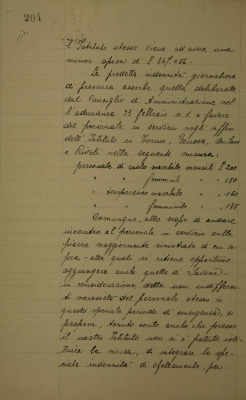 204
l'Istituto stesso viene ad avere una
minor spesa di £ 347.
La predetta indennità giornaliera
di presenza assorbe quella deliberata
dal Consiglio di Amministrazione nel
l'adunanza 23 febbraio u.s. a favore
del personale in servizio negli uffici
dell'Istituto in Torino, Genova,
e Rivoli nella seguente misura:
personale di ruolo maschile mensili £ 200
" " femminile " " 150
" temporaneo maschile " " 150
" " femminile " " 125
Comunque, allo scopo di andare
incontro al personale in servizio sulle
piazze maggiormente sinistrate di cui so
pra - alle quali si ritiene opportuno
aggiungere anche quella di Savona -
in considerazione delle non indifferen
ti necessità del personale stesso in
questo speciale periodo di emergenza, si
propone, tenuto conto anche che presso
il nostro Istituto non si è potuto isti-
tuire la mensa, di integrare la spe-
ciale indennità di sfollamento, per